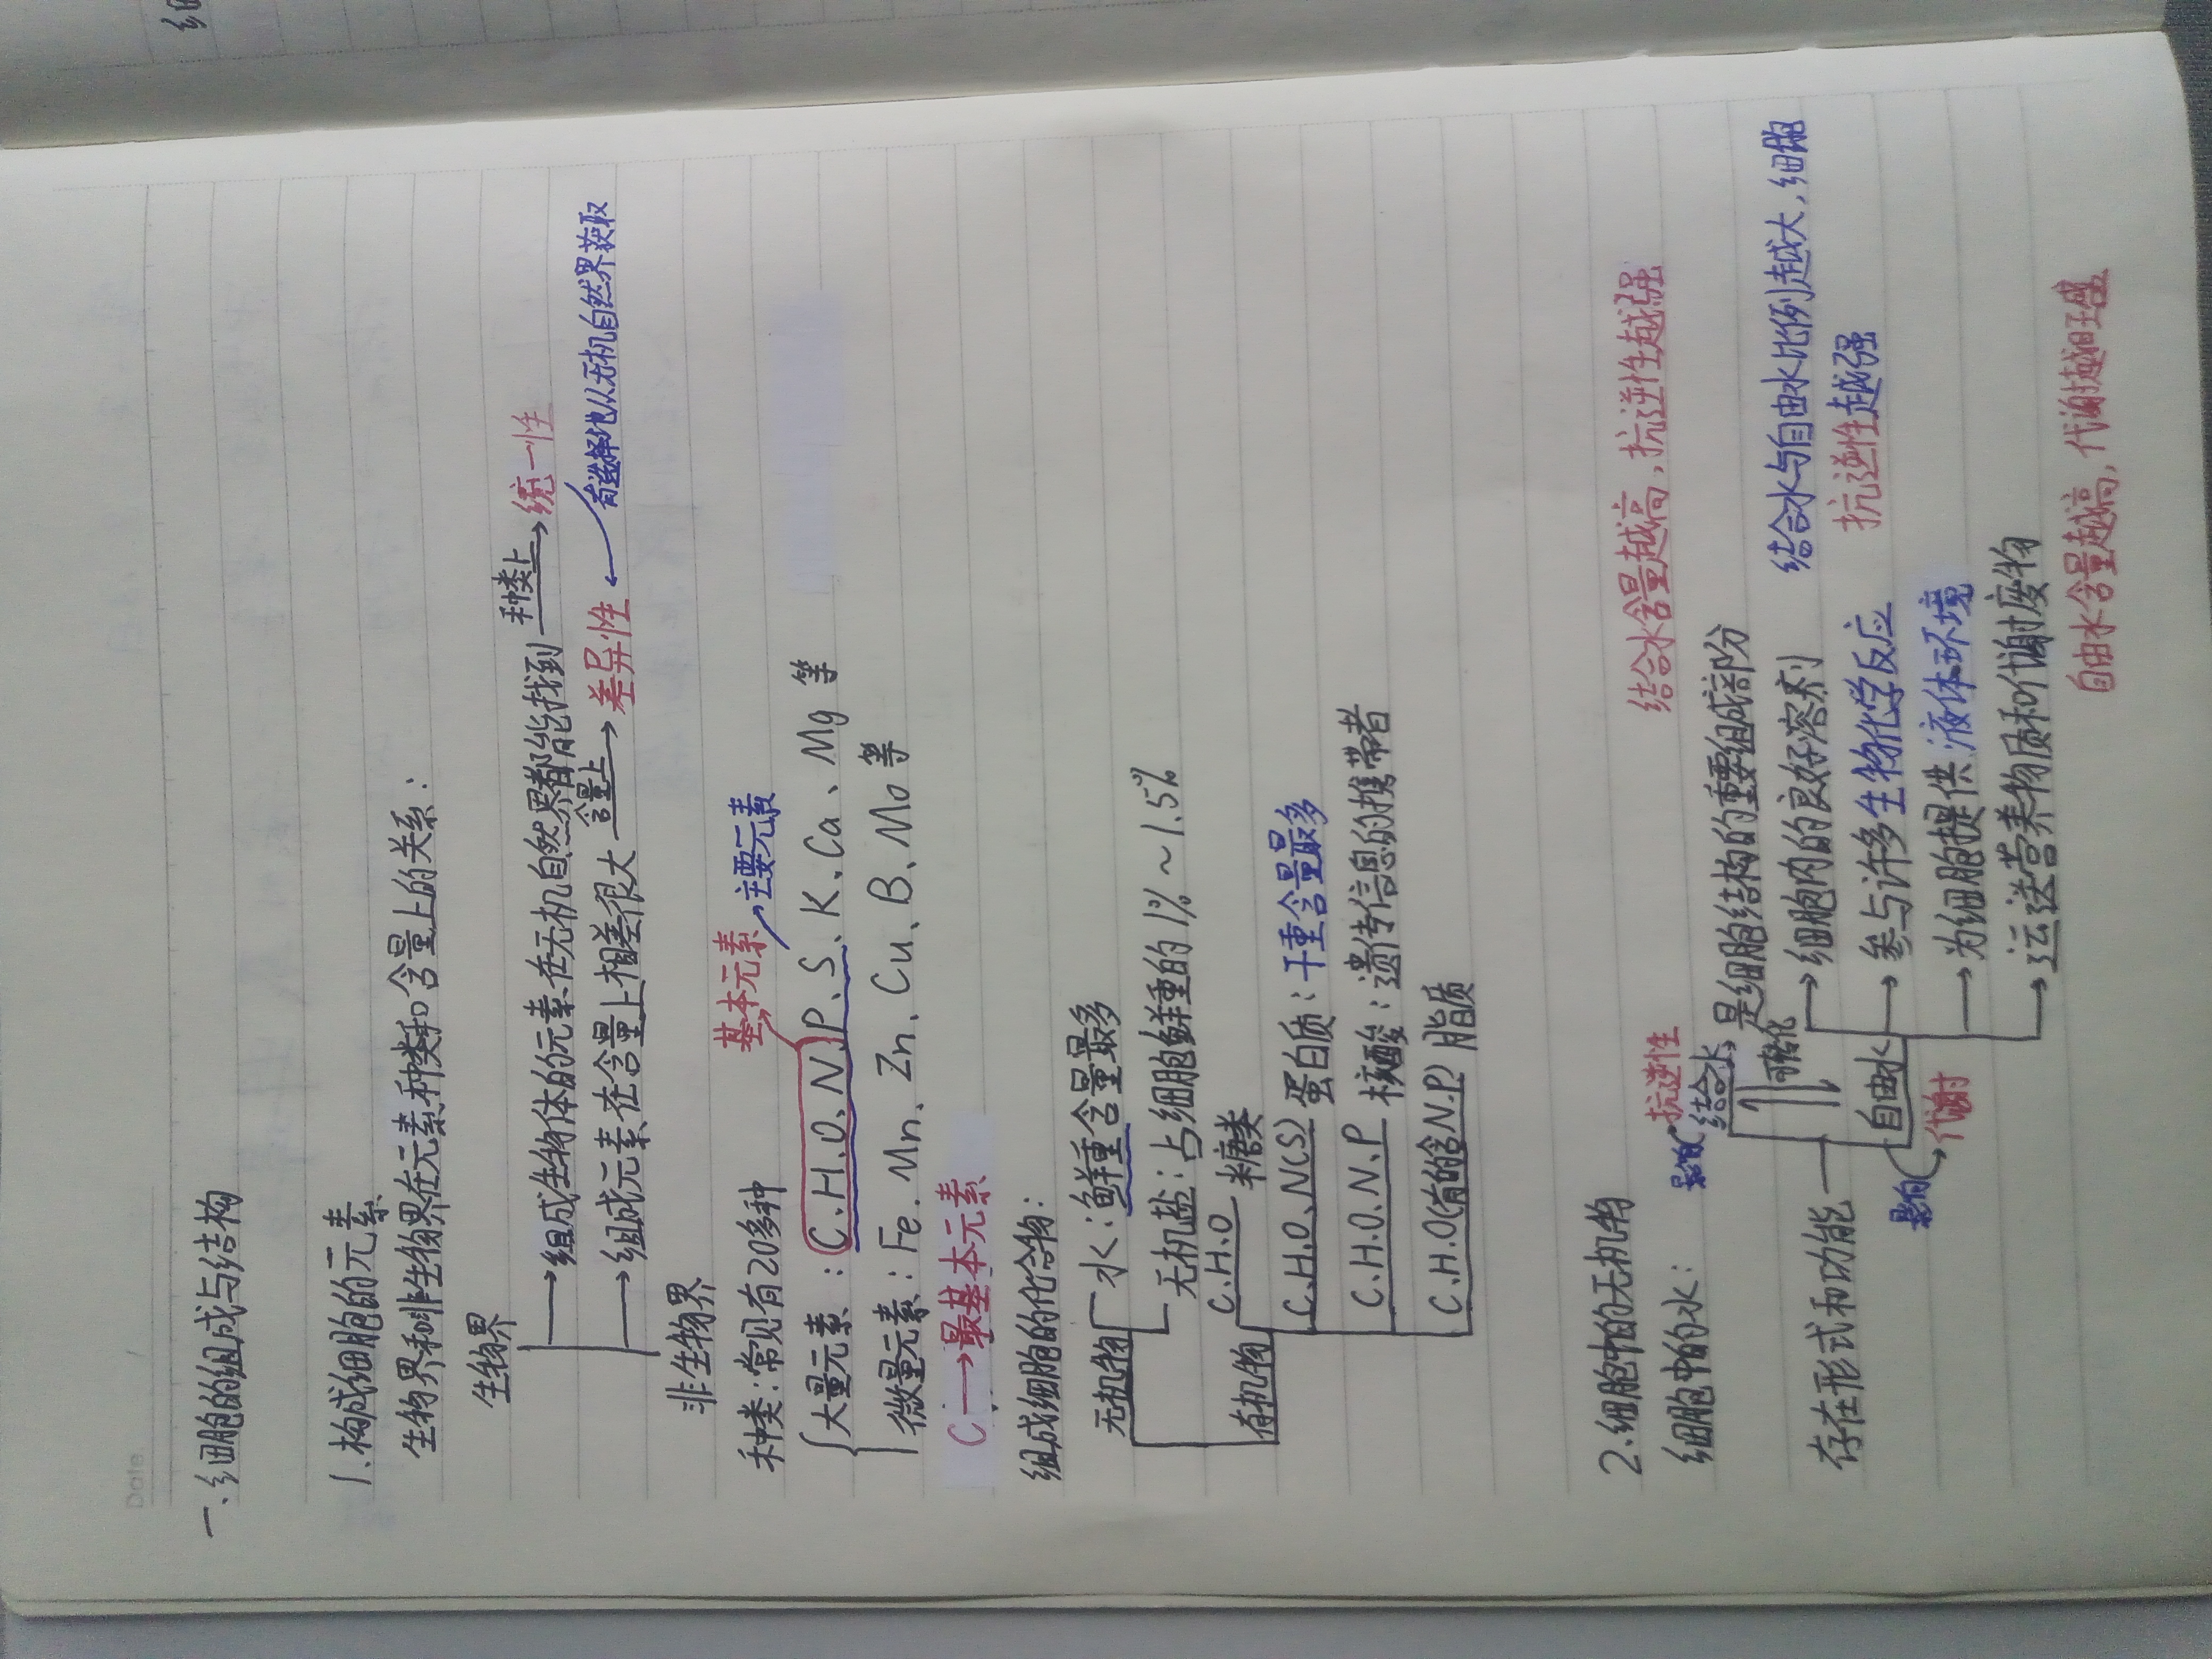 Date
一、细胞的组成与结构
1.构成细胞的元素
生物界和非生物界在元素种类和含量上的关系：
生物界
→组成生物体的元素在无机自然界都能找到 种类上→统一性
→组成元素在含量上相差很大 含量上→差异性 ←有选择地从无机自然界获取
非生物界
基本元素 主要元素
种类：常见有20多种
大量元素：C、H、O、N、P、S、K、Ca、Mg 等
微量元素：Fe、Mn、Zn、Cu、B、Mo等
C→最基本元素
组成细胞的化合物：
无机物 水：鲜重含量最多
无机盐：占细胞鲜重的1%～1.5%
有机物 C.H.O 糖类
C.H.O.N(S) 蛋白质：干重含量最多
C.H.O.N.P 核酸：遗传信息的携带者
C.H.O(有的含N.P) 脂质
2.细胞中的无机物
细胞中的水：
影响 抗逆性 结合水含量越高，抗逆性越强
结合水，是细胞结构的重要组成部分
转化
存在形式和功能
自由水
→细胞内的良好溶剂
→参与许多生物化学反应
→为细胞提供液体环境
→运送营养物质和代谢废物
影响 代谢
结合水与自由水比例越大，细胞
抗逆性越强
自由水含量越高，代谢越旺盛